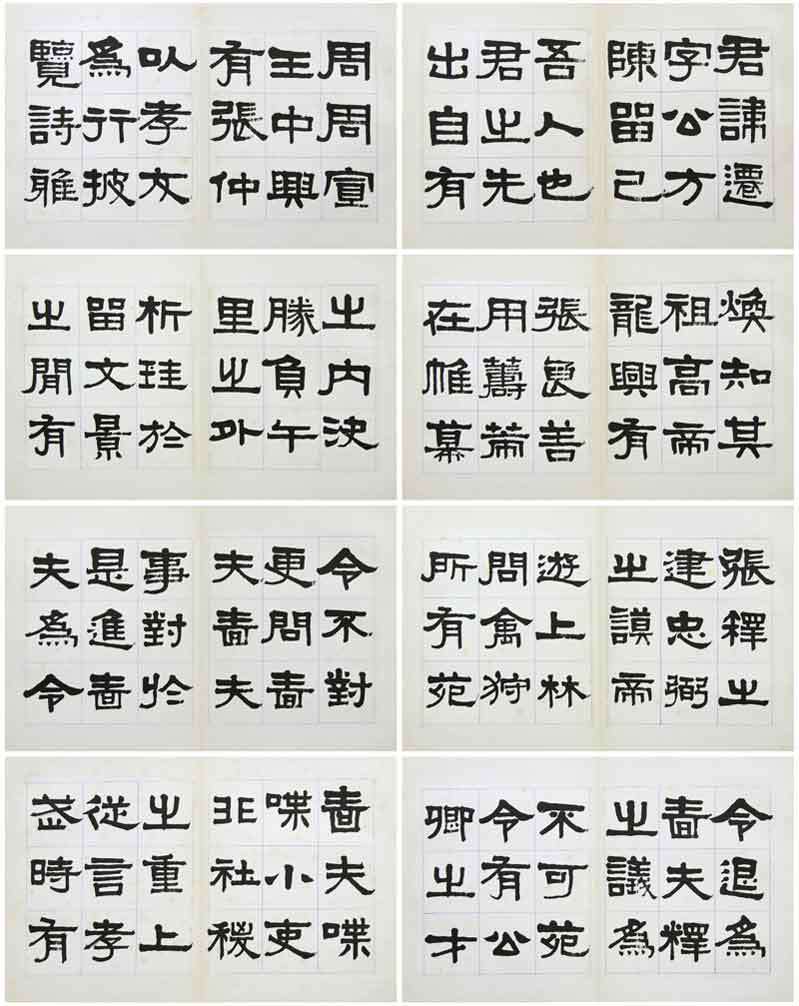 君諱遷
字公方
陳留己
吾人也
君之先
出自有
周周宣
王中興
有張仲
以孝友
為行披
覽詩雅
煥知其
祖高帝
龍興有
張良善
用籌策
在帷幕
之內決
勝負千
里之外
析珪於
留文景
之間有
張釋之
建忠弼
之謨帝
遊上林
問禽狩
所有苑
令不對
更問嗇
夫嗇夫
事對於
是進嗇
夫為令
令退為
嗇夫釋
之議為
不可苑
令有公
卿之才
嗇夫喋
喋小吏
非社稷
之重上
從言孝
武時有